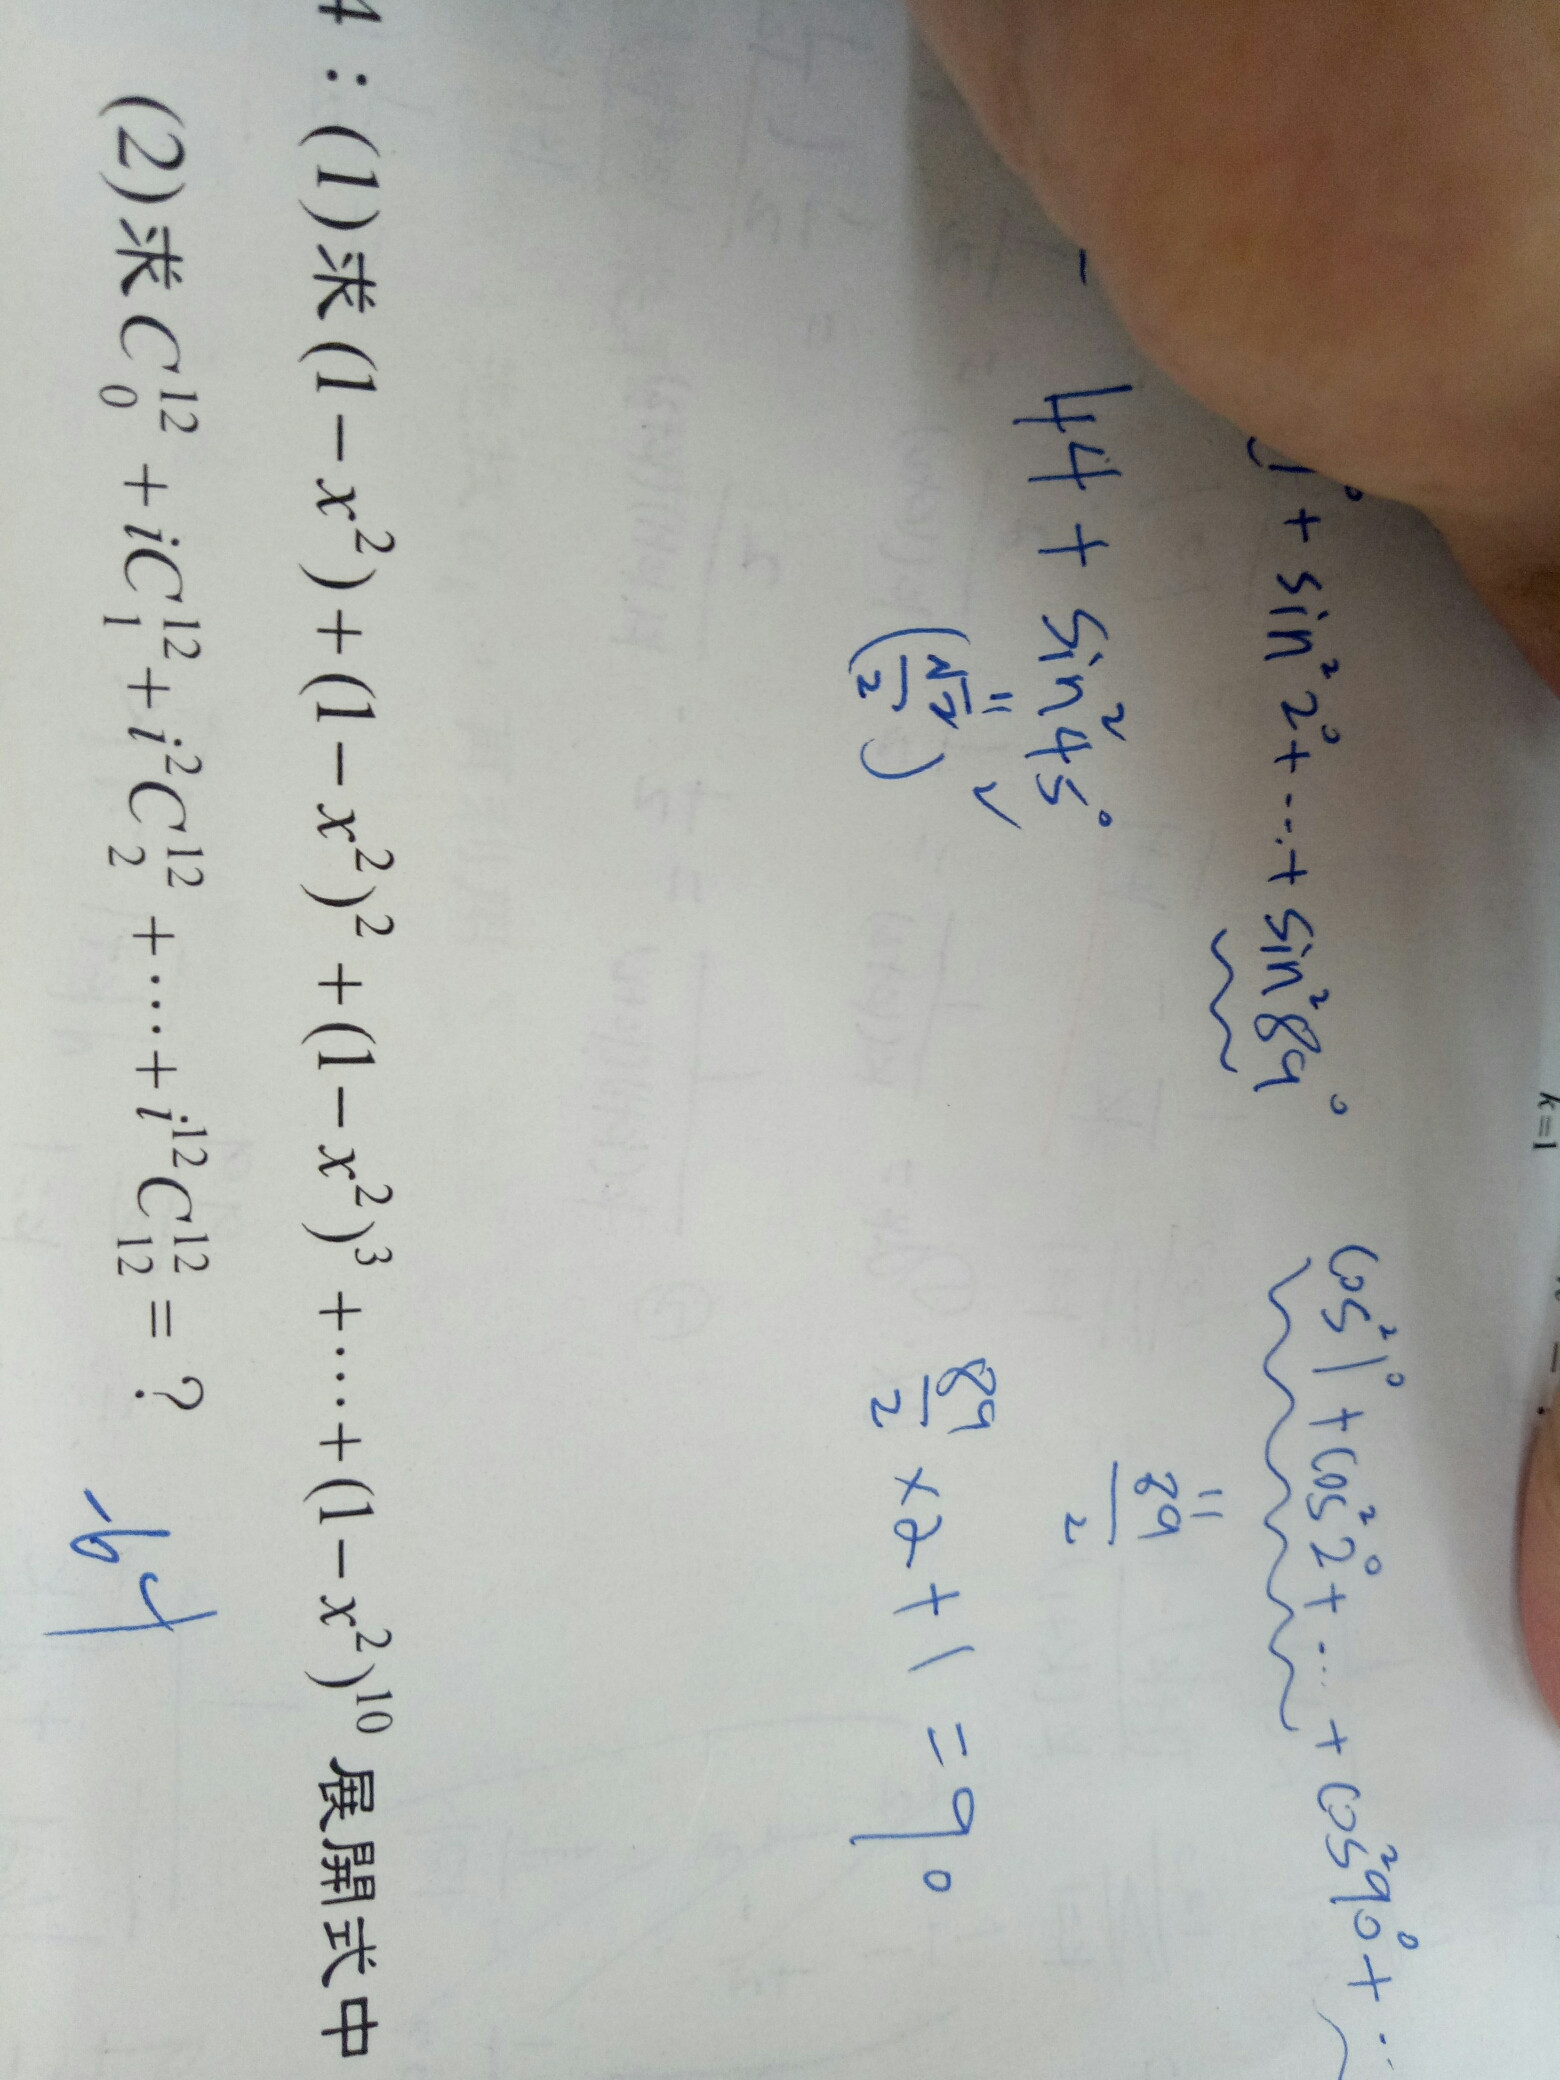 k=1
1° + sin² 2° + ... + sin² 89°
cos² 1° + cos² 2° + ... + cos² 90° + ...
= 89/2
- 44 + sin² 45°
= (√2/2)²
89/2 × 2 + 1 = 90
4：(1)求(1−x²)+(1−x²)²+(1−x²)³+⋯+(1−x²)¹⁰展開式中
(2)求C₀¹²+iC₁¹²+i²C₂¹²+⋯+i¹²C₁₂¹²=？ -64